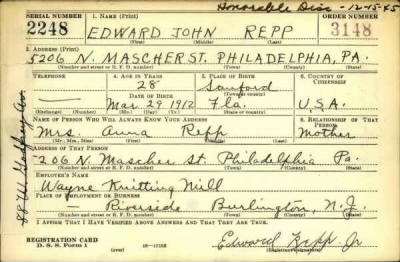 Honorable Disc - 12-15-45
SERIAL NUMBER 1. NAME (Print) ORDER NUMBER
2248 EDWARD JOHN REPP 3148
(First) (Middle) (Last)
2. ADDRESS (Print)
5206 N. MASCHER ST. PHILADELPHIA, PA.
(Number and street or R. F. D. number) (Town) (County) (State)
3. TELEPHONE 4. AGE IN YEARS 5. PLACE OF BIRTH 6. COUNTRY OF CITIZENSHIP
28 Sanford
DATE OF BIRTH (Town or county)
Mar 29 1912 Fla. U.S.A.
(Exchange) (Number) (Mo.) (Day) (Yr.) (State or country)
7. NAME OF PERSON WHO WILL ALWAYS KNOW YOUR ADDRESS 8. RELATIONSHIP OF THAT PERSON
Mrs. Anna Repp Mother
(Mr., Mrs., Miss) (First) (Middle) (Last)
9. ADDRESS OF THAT PERSON
5206 N. Mascher St. Philadelphia Pa.
(Number and street or R. F. D. number) (Town) (County) (State)
10. EMPLOYER'S NAME
Wayne Knitting Mill
11. PLACE OF EMPLOYMENT OR BUSINESS
— Riverside Burlington, N.J.
(Number and street or R. F. D. number) (Town) (County) (State)
I AFFIRM THAT I HAVE VERIFIED ABOVE ANSWERS AND THAT THEY ARE TRUE.
REGISTRATION CARD
D. S. S. Form 1 16-17105 Edward Repp Jr
(Registrant's signature)